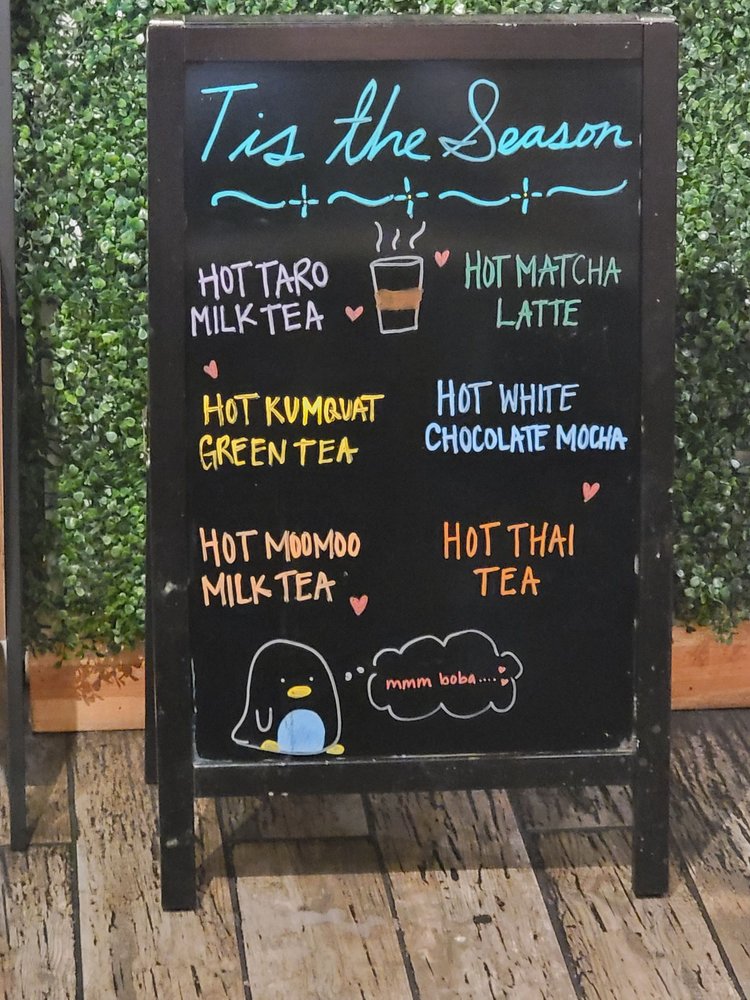 Tis the Season
HOT TARO
MILK TEA
HOT MATCHA
LATTE
HOT KUMQUAT
GREEN TEA
HOT WHITE
CHOCOLATE MOCHA
HOT MOOMOO
MILK TEA
HOT THAI
TEA
mmm boba....